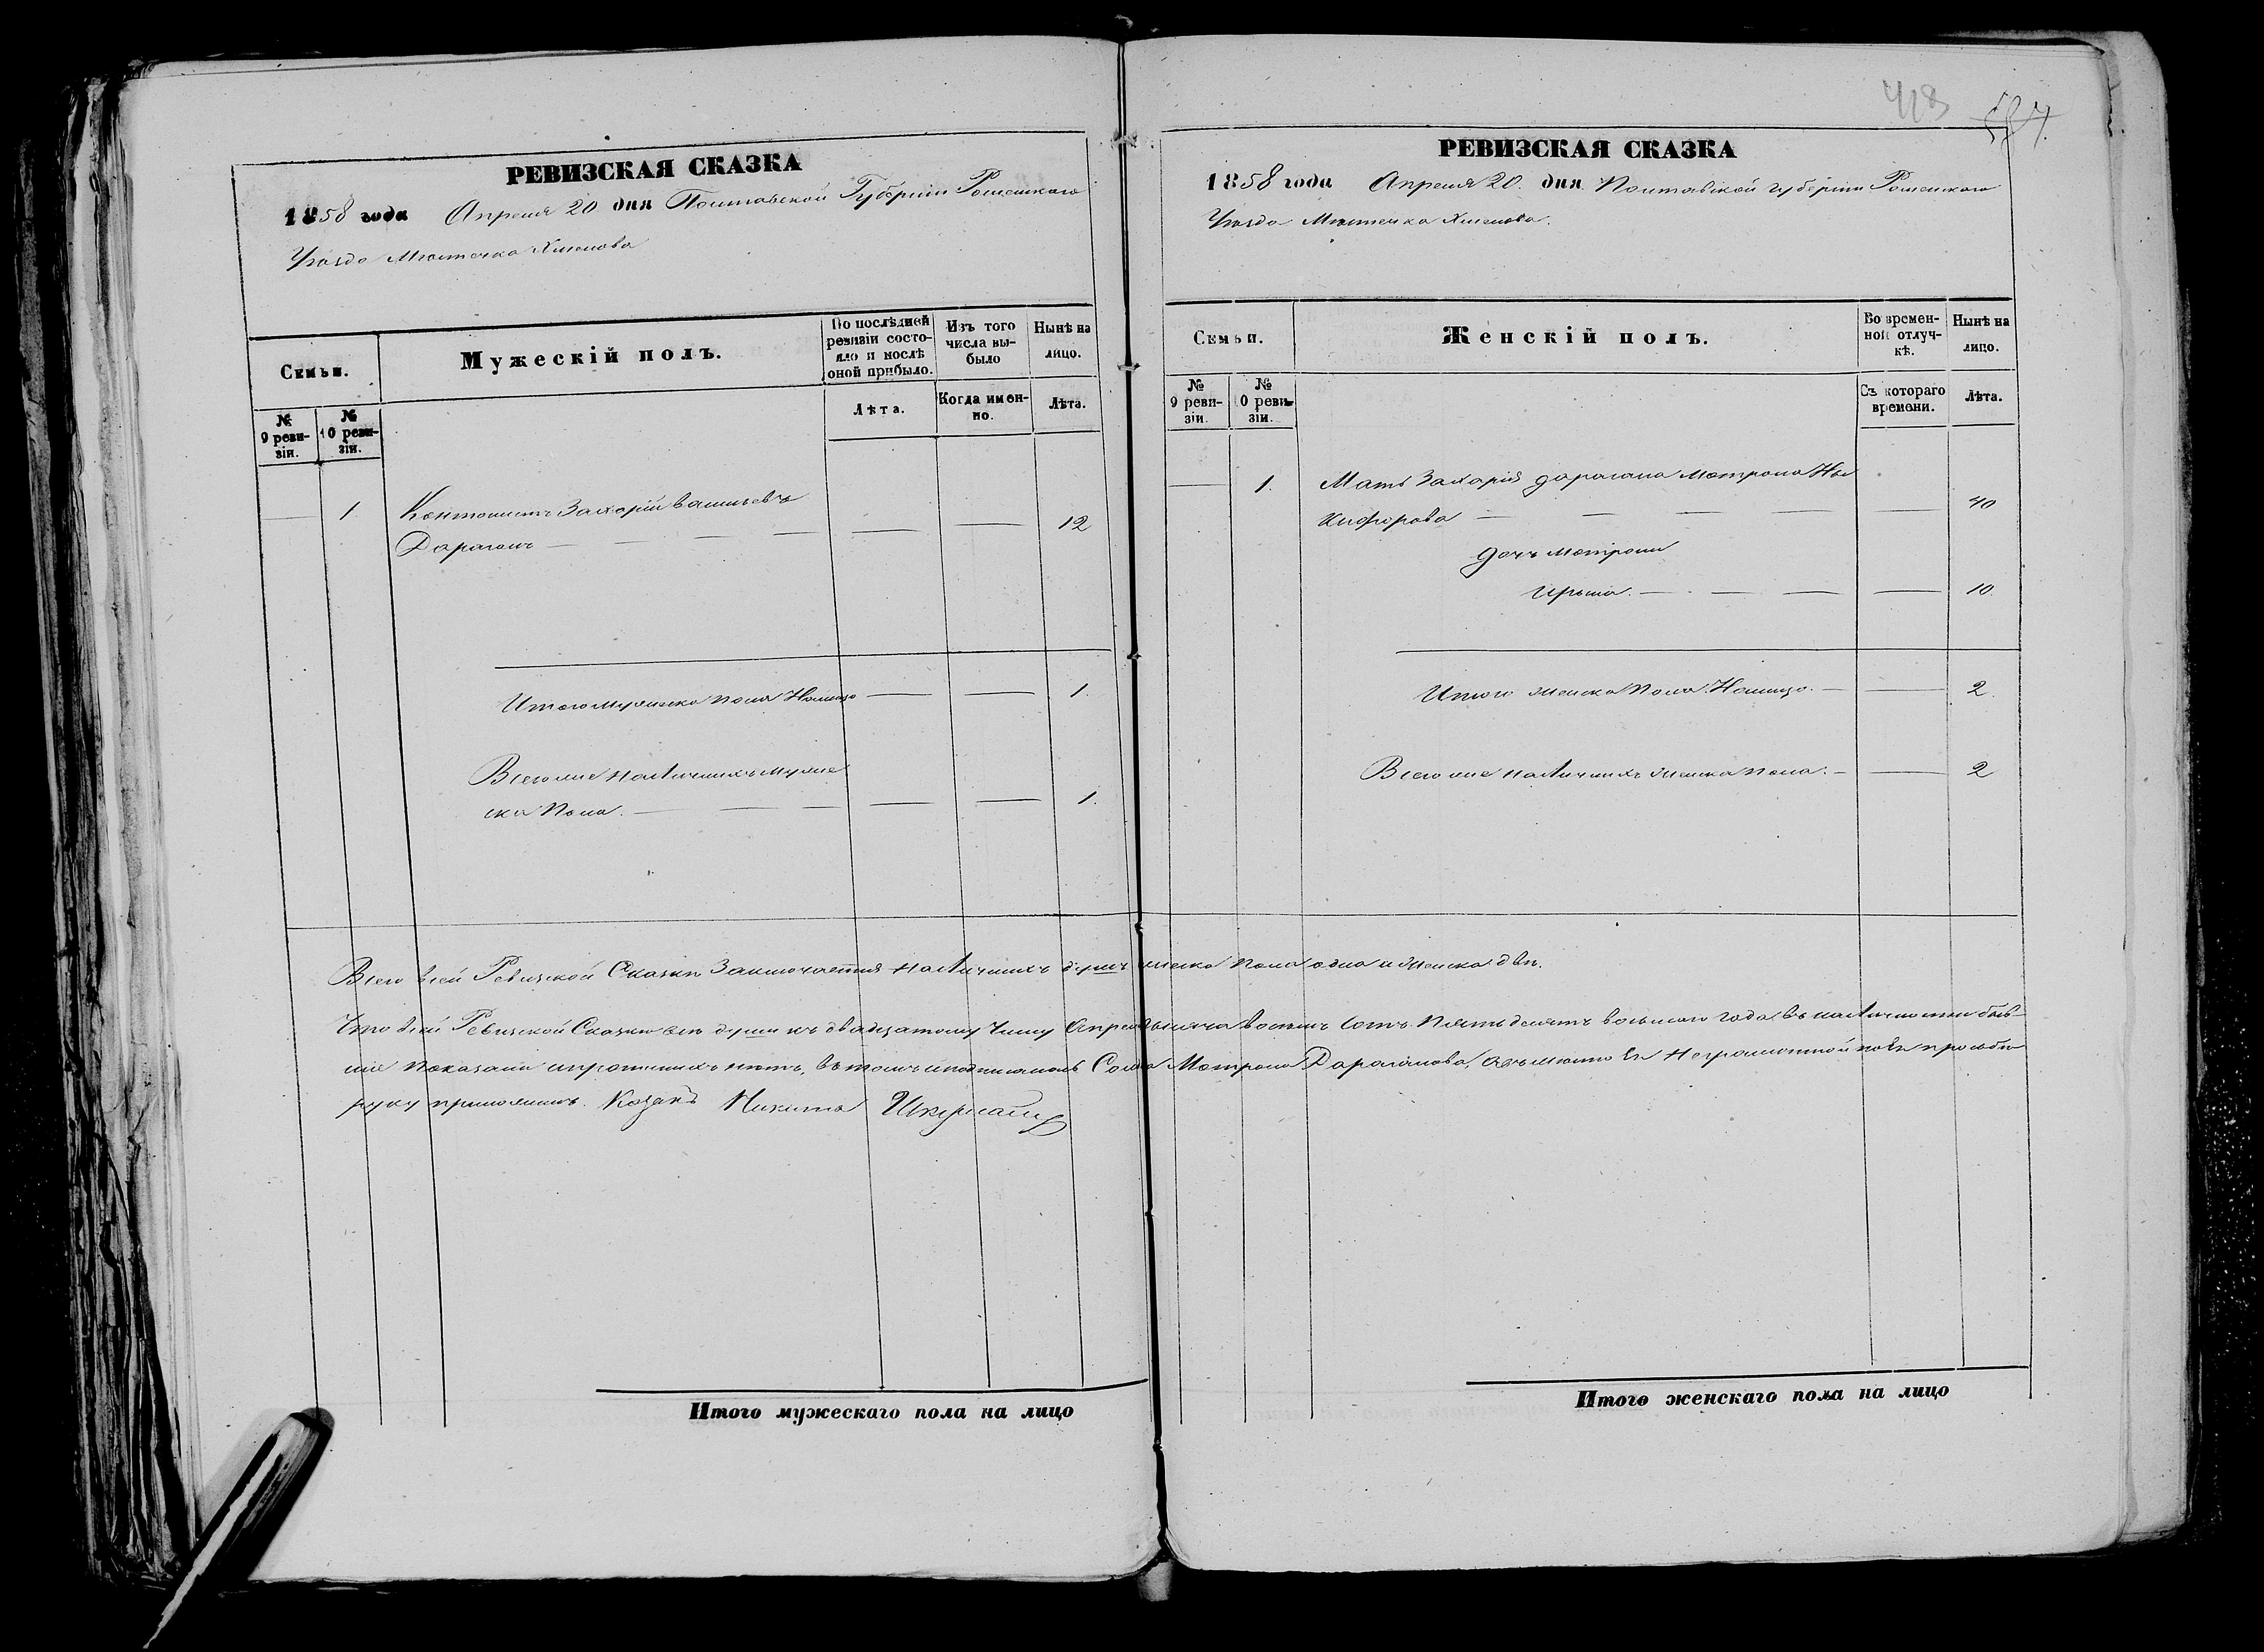 РЕВИЗСКАЯ СКАЗКА
1858 года Апреля 20 дня Полтавской Губерніи Роменскаго
Уѣзда Мѣстечка Хмелова
Семьи.
Мужескій полъ.
По послѣдней ревизіи состояло и послѣ оной прибыло.
Изъ того числа выбыло
Нынѣ на лицо.
№ 9 ревизіи.
№ 10 ревизіи.
Лѣта.
Когда именно.
Лѣта.
— 1 Захарій Васильевъ
Дараганъ — — — — — — 12
Итого мужеска пола Налицо — — 1.
Всего же наличныхъ муже
ска Пола. — — — — — 1.
Итого мужескаго пола на лицо
413 584.
РЕВИЗСКАЯ СКАЗКА
1858 года Апреля 20. дня Полтавской губерніи Роменскаго
Уѣзда Мѣстечка Хмелова.
Семьи.
Женскій полъ.
Во временной отлучкѣ.
Нынѣ на лицо.
№ 9 ревизіи.
№ 10 ревизіи.
Съ котораго времени.
Лѣта.
— 1. Мать Захарія дарагана Мотрона Ни
кифорова — — — — — 40
дочь Мотроны
Ирына. — — — — 10.
Итого женска Пола Налицо. — — 2.
Всего же наличныхъ женска пола. — — 2
Итого женскаго пола на лицо
Всего всей Ревизской Сказки Заключается наличныхъ душъ мужеска пола одна и женска двѣ.
Что всей Ревизской Сказки всѣ души къ двадцатому Числу Апреля тысяча восемь сотъ Пятьдесятъ восьмаго года въ наличности быв-
шіе показани и прописныхъ нѣтъ, въ томъ и подписалась Мотрона Дараганова, а вмѣсто Ея Неграмотной по Ея прозьбѣ
руку приложилъ. Козакъ Никита